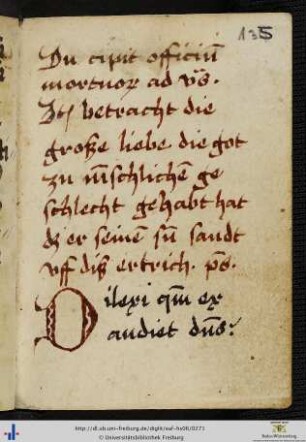 135
Du cipit officiū
mortuoꝝ ad vs̄.
Itē betracht die
große liebe die got
zu mēschlichē ge
schlecht gehabt hat
dz er seinē sū sandt
vff diß ertrich. ps̄.
Dilexi qm̄ ex
audiet dūs:
http://dl.ub.uni-freiburg.de/diglit/wal-hs08/0271
© Universitätsbibliothek Freiburg
Baden-Württemberg